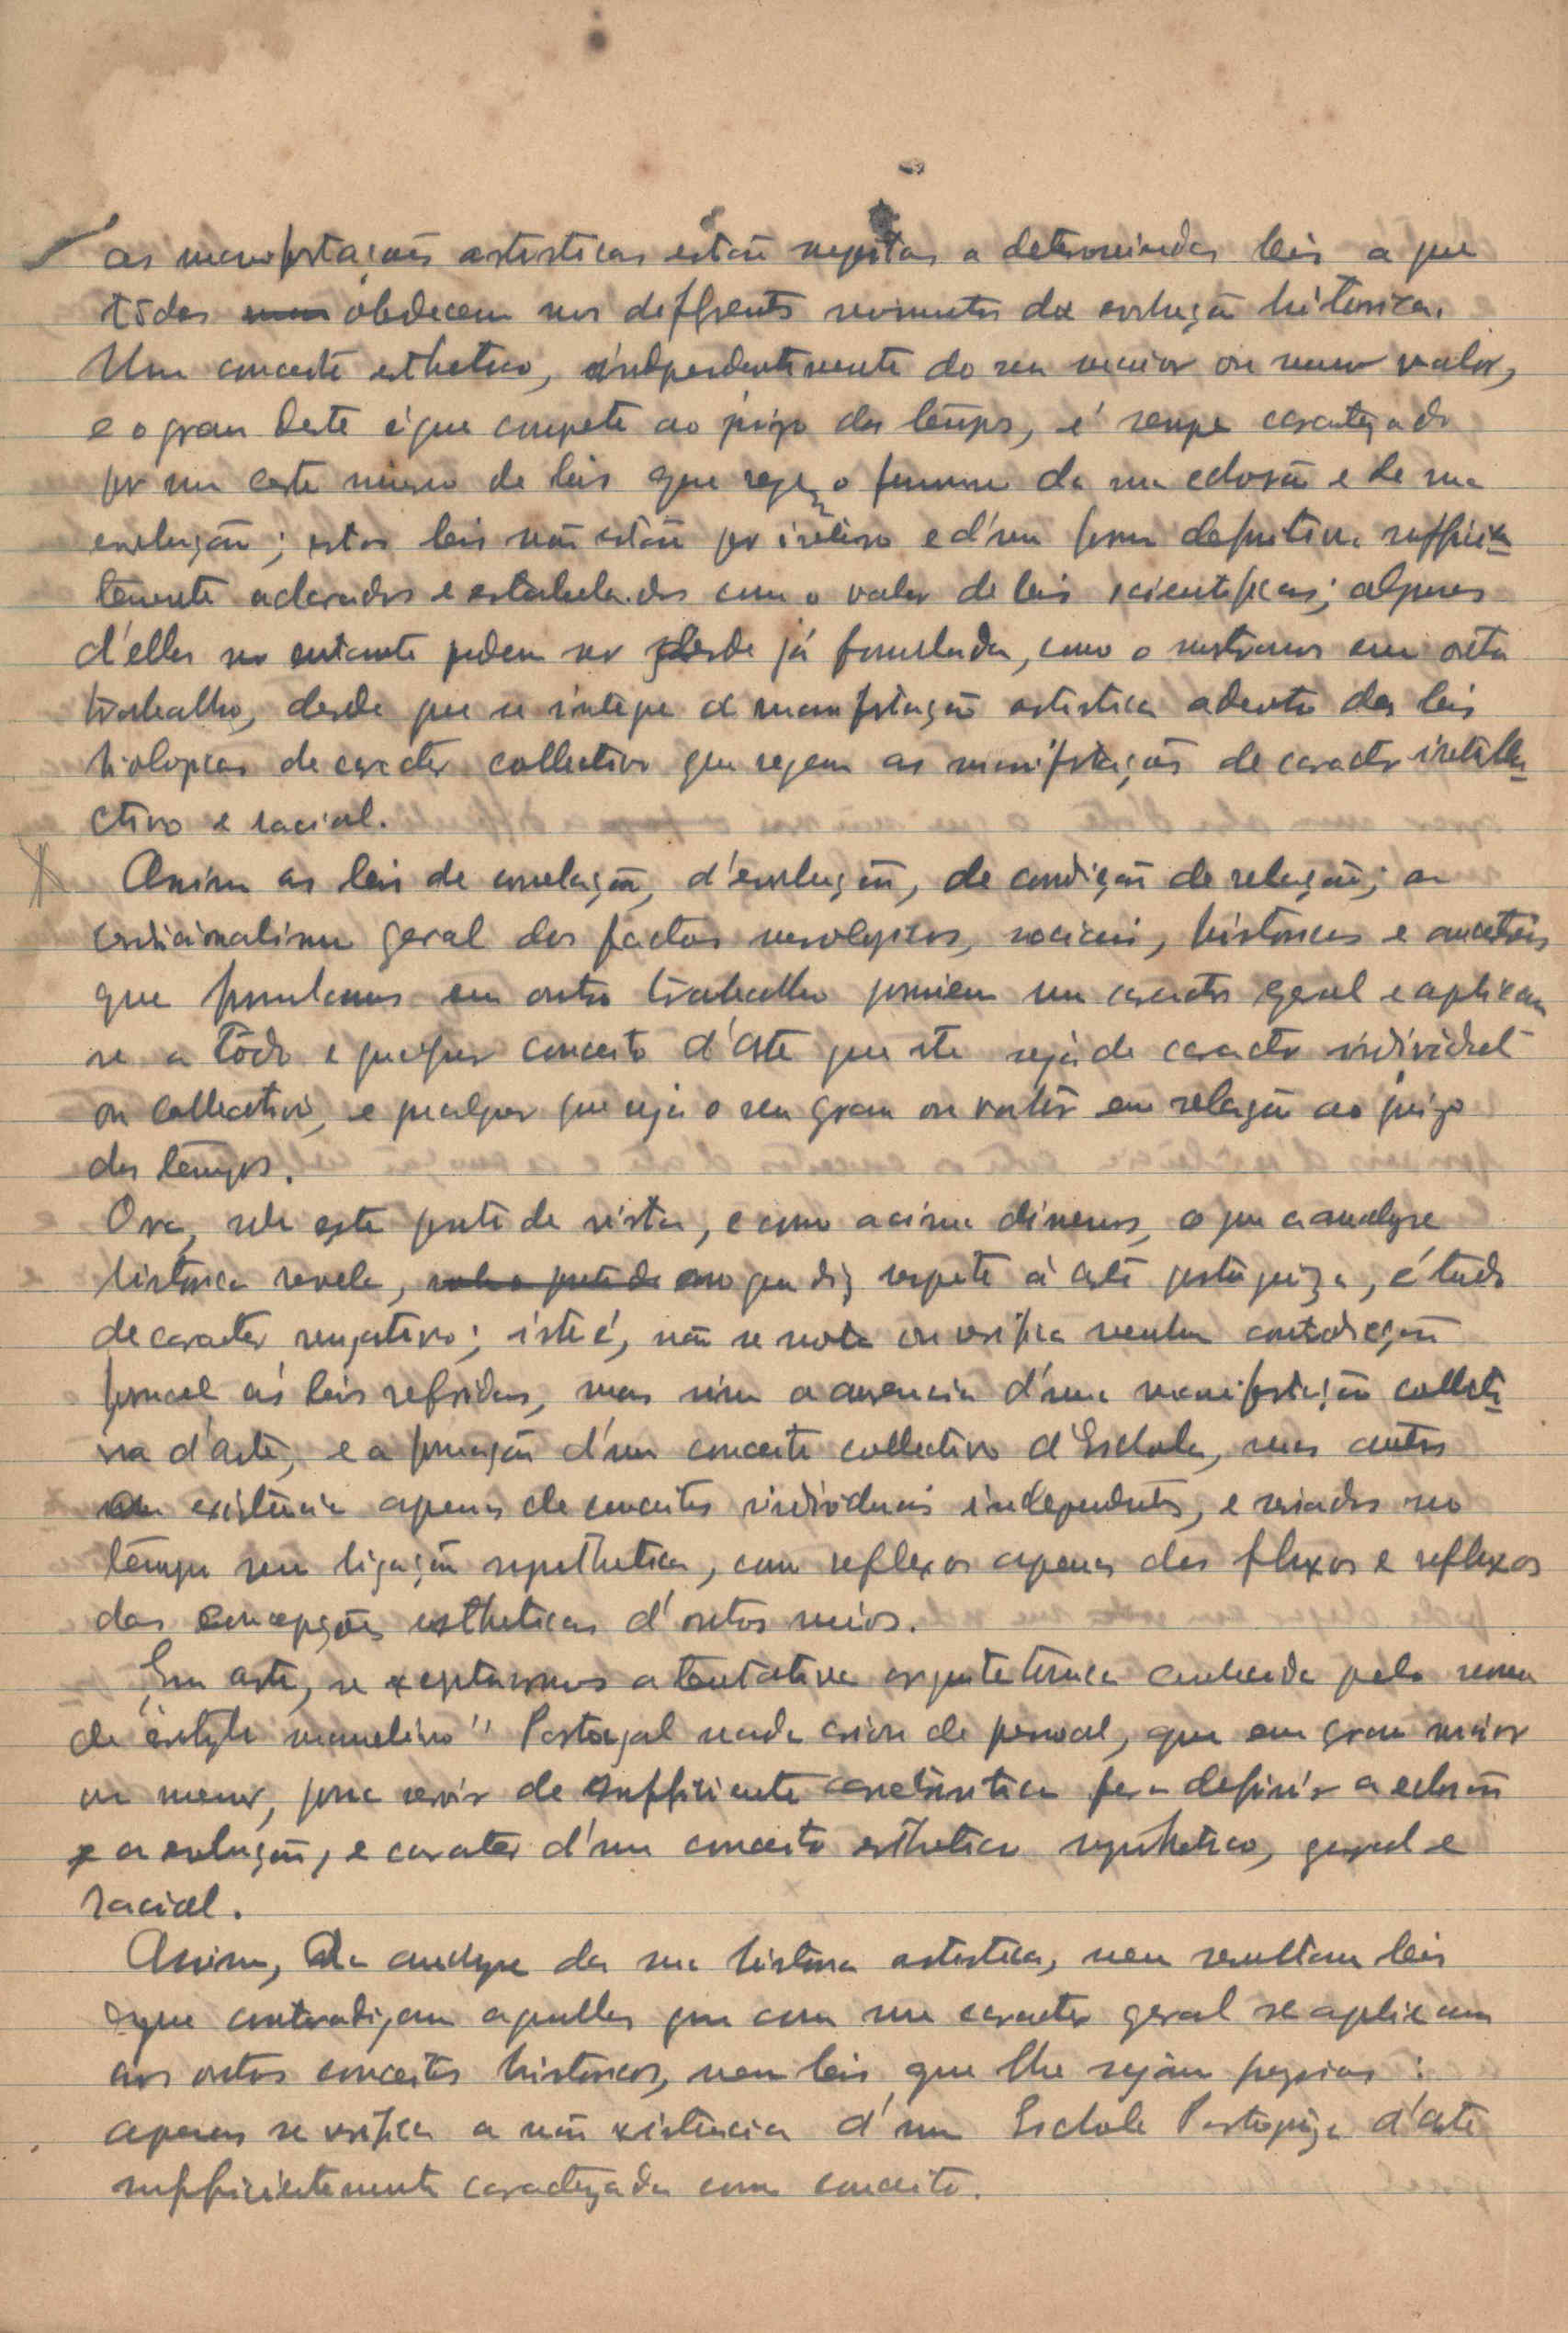 as manifestações artisticas estão sujeitas a determinadas leis a que
todas obedecem nos differentes momentos da evolução historica.
Um conceito esthetico, independentemente do seu maior ou menor valor,
e o grau deste é que compete ao juizo dos tempos, é sempre caracterizado
por um certo numero de leis que regem o fenomeno da sua eclosão e de sua
evolução; estas leis não estão por inteiro e d'uma forma definitiva sufficien
temente aclaradas e estabelecidas com o valor de leis scientificas; algumas
d'ellas no entanto podem ser desde já formuladas, como o mostramos em outro
trabalho, desde que se integre a manifestação artistica adentro das leis
biologicas de caracter collectivo que regem as manifestações de caracter intelle
ctivo e racial.
Assim as leis de correlação, d'evolução, de condição de relação; ao
condicionalismo geral dos factos mesologicos, sociais, historicos e ancestrais
que formulamos em outro trabalho possuem um caracter geral e aplicam
se a todo e qualquer conceito d'Arte que este seja de caracter individual
ou collectivo, e qualquer que seja o seu grau ou valor em relação ao juizo
dos tempos.
Ora, sob este ponto de vista, e como acima dissemos, o que a analyse
historica revela, no que diz respeito á arte portugueza, é tudo
de caracter negativo; isto é, não se nota ou verifica nenhuma contradicção
formal ás leis referidas, mas sim a ausencia d'uma manifestação collecti
va d'arte, e a formação d'um conceito collectivo d'Eschola, mas antes
a existencia apenas de conceitos individuais independentes, e criados no
tempo sem ligação synthetica, com reflexos apenas dos fluxos e reflexos
das concepções estheticas d'outros meios.
Em arte, se exceptuarmos a tentativa arquitetonica conhecida pelo nome
de "estylo manuelino" Portugal nada criou de pessoal, que em grau maior
ou menor, possa servir de sufficiente caracteristica para definir a eclosão
e a evolução, e caracter d'um conceito esthetico synthetico, geral e
racial.
Assim, da analyse da sua historia artistica, nem resultam leis
que contradigam aquellas que com um caracter geral se aplicam
aos outros conceitos historicos, nem leis que lhe sejam proprias:
apenas se verifica a não existencia d'uma Eschola Portugueza d'Arte
sufficientemente caracterizada como conceito.